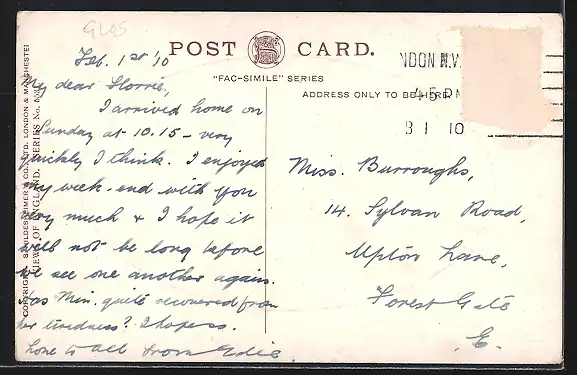 GLOS
Feb. 1st '10
POST CARD.
"FAC-SIMILE" SERIES
ADDRESS ONLY TO BE HERE
NDON N.W.
4 5 PM
B 1 10
My dear Florrie,
I arrived home on
Sunday at 10.15 - very
quickly I think. I enjoyed
my week-end with you
very much & I hope it
will not be long before
we see one another again.
Has Min. quite recovered from
her tiredness? I hope so.
Love to all from Edie.
Miss. Burroughs,
14. Sylvan Road,
Upton Lane,
Forest Gate
E.
COPYRIGHT. S. HILDESHEIMER & CO. LTD. LONDON & MANCHESTER
VIEWS OF ENGLAND. SERIES No.